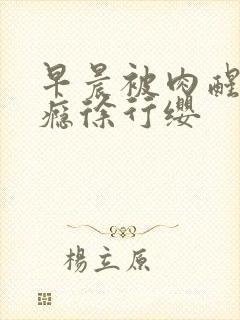 早晨被肉醒
瘾徐行缨
楊立原